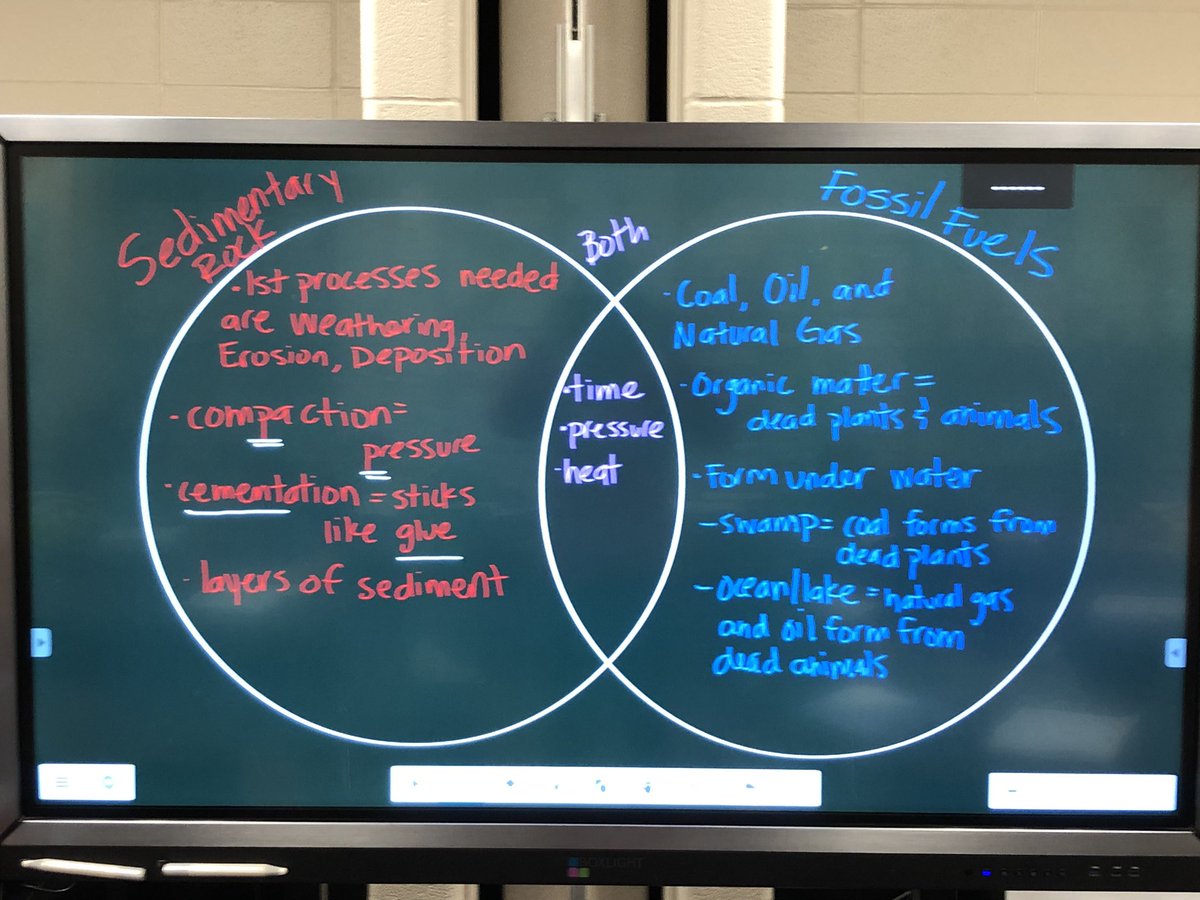 Sedimentary
Rock
• 1st processes needed
are Weathering,
Erosion, Deposition
• compaction=
pressure
• cementation = sticks
like glue
• layers of sediment
Both
• time
• pressure
• heat
Fossil Fuels
• Coal, Oil, and
Natural Gas
• Organic matter =
dead plants & animals
• Form under water
- swamp = coal forms from
dead plants
- ocean/lake = natural gas
and oil form from
dead animals
BOXLIGHT